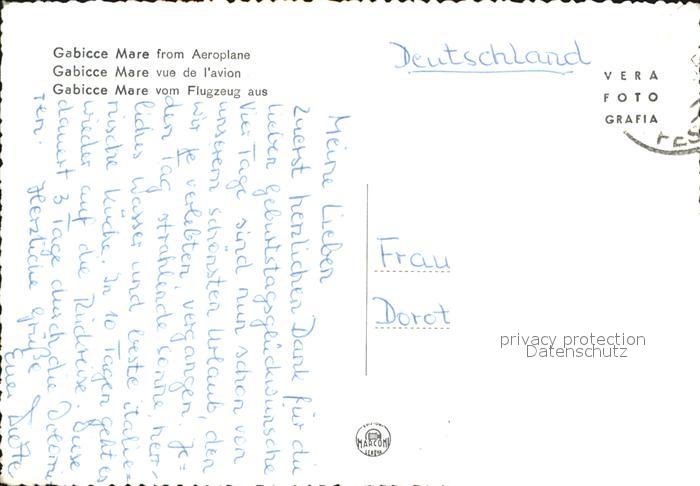 Gabicce Mare from Aeroplane
Gabicce Mare vue de l'avion
Gabicce Mare vom Flugzeug aus
Deutschland
VERA
FOTO
GRAFIA
Meine Lieben
Zuerst herzlichen Dank für die
lieben Geburtstagsglückwünsche
Vier Tage sind nun schon von
unserem schönsten Urlaub, den
wir je verlebten vergangen. Je=
den Tag strahlende Sonne, herr-
liches Wasser und beste italie=
nische Küche. In 10 Tagen geht es
wieder auf die Rückreise. Diese
dauert 3 Tage durch die
ten. Herzliche Grüße
Frau
Dorot
privacy protection
Datenschutz
MARCONI
GENOVA